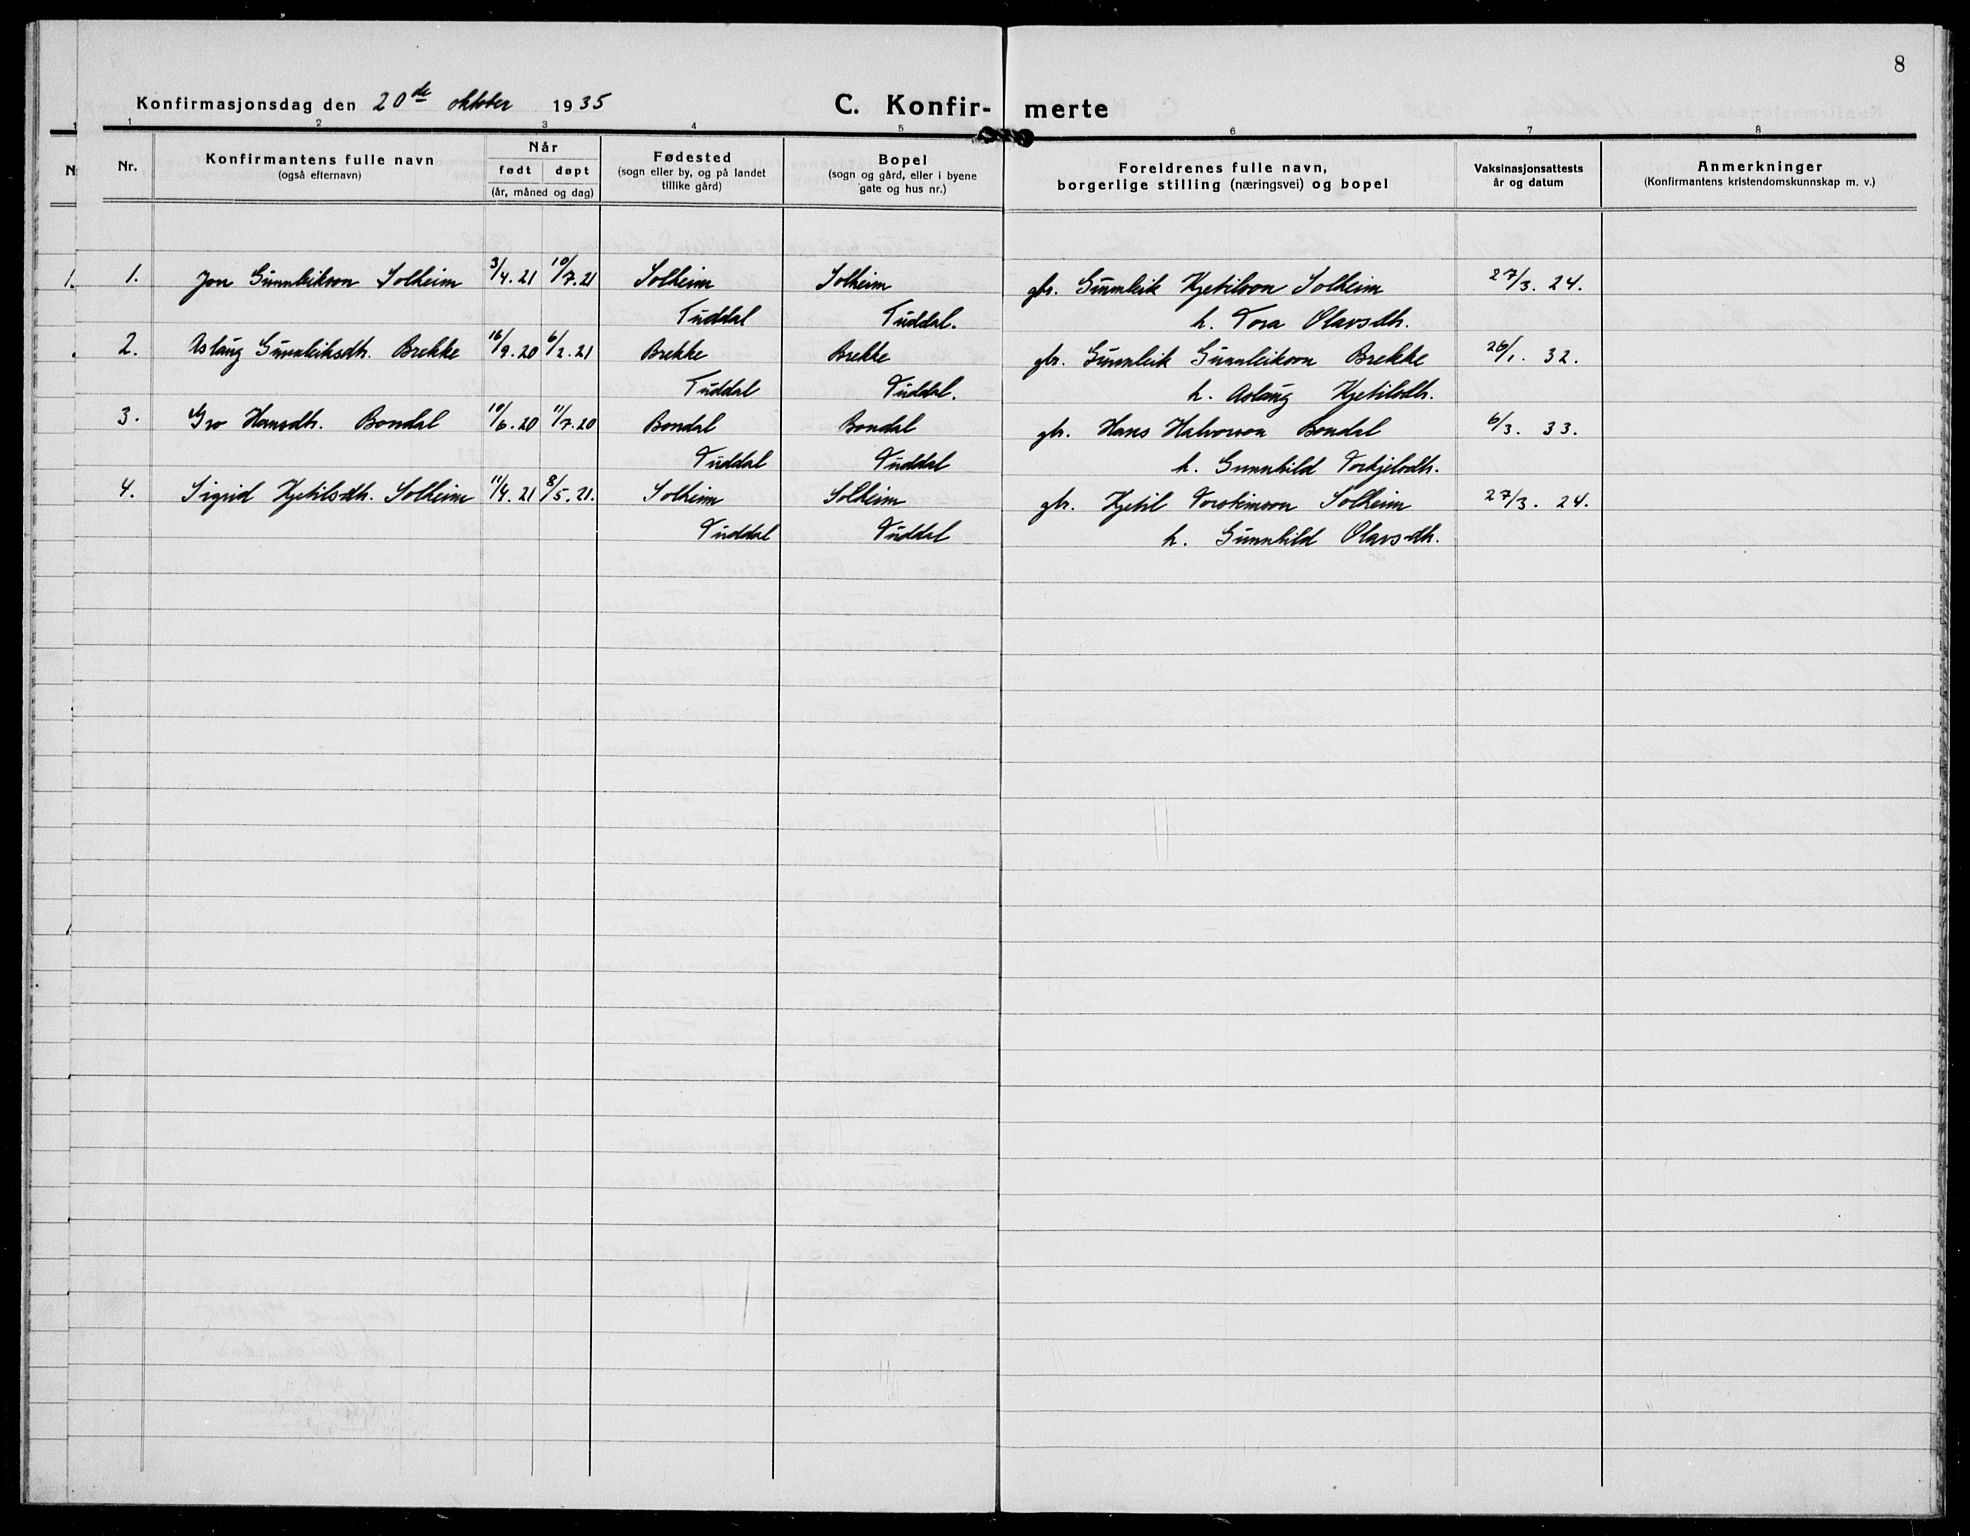 8
Konfirmasjonsdag den 20de oktober 1935 C. Konfir- merte
1 1 2 3 4 5 6 7 8
N Nr. Konfirmantens fulle navn (også efternavn) Når født døpt (år, måned og dag) Fødested (sogn eller by, og på landet tillike gård) Bopel (sogn og gård, eller i byene gate og hus nr.) Foreldrenes fulle navn, borgerlige stilling (næringsvei) og bopel Vaksinasjonsattests år og datum Anmerkninger (Konfirmantens kristendomskunnskap m. v.)
1. 1. Jon Gunnleikson Solheim 3/4.21 10/7.21 Solheim Solheim gbr. Gunnleik Kjetilson Solheim 27/3. 24.
Tuddal Tuddal. h. Tora Olavsdtr.
2. Aslaug Gunnleiksdtr. Brekke 16/9.20 6/2.21 Brekke Brekke gbr. Gunnleik Gunnleikson Brekke 26/1. 32.
Tuddal Tuddal. h. Aslaug Kjetilsdtr.
3. Gro Hansdtr. Bondal 10/6.20 11/7.20 Bondal Bondal gbr. Hans Halvorson Bondal 6/3. 33.
Tuddal Tuddal h. Gunnhild Torkjelsdtr.
4. Sigrid Kjetilsdtr. Solheim 11/4.21 8/5.21. Solheim Solheim gbr. Kjetil Torsteinson Solheim 27/3. 24.
Tuddal Tuddal h. Gunnhild Olavsdtr.